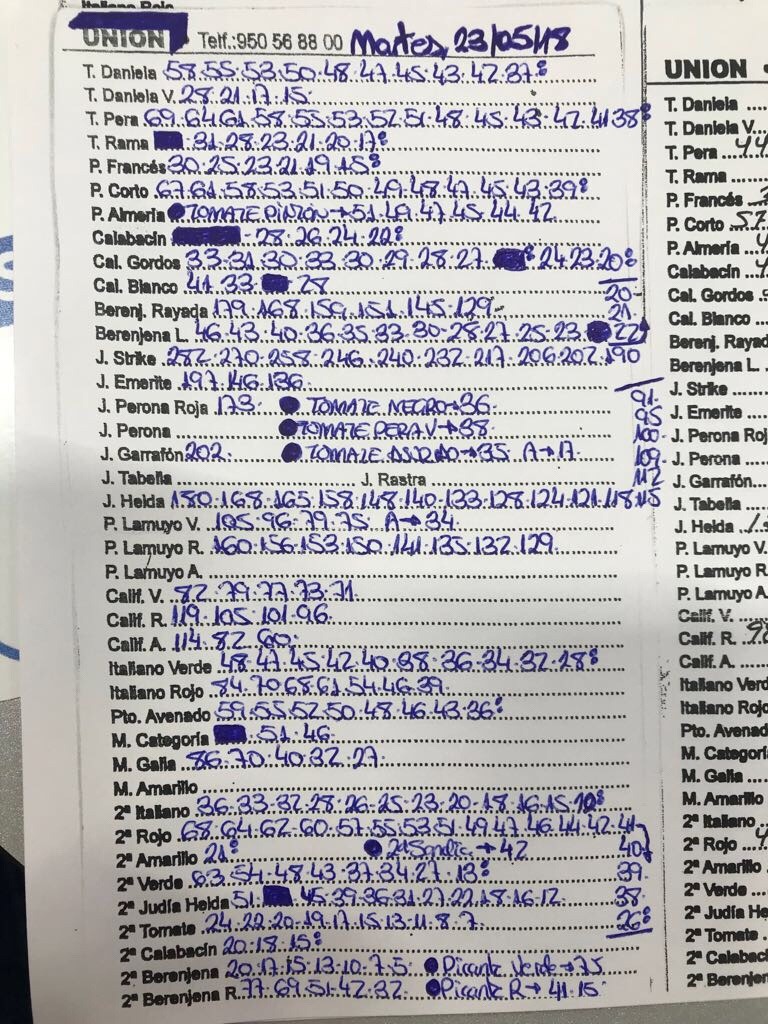 Italiano Rojo
UNION • Telf.:950 56 88 00 Martes, 23/05/18
T. Daniela 58.55.53.50.48.47.45.43.42.37.
T. Daniela V. 28.21.17.15.
T. Pera 69.64.61.58.55.53.52.51.48.45.43.42.41.38.
T. Rama 31.28.23.21.20.17.
P. Francés 30.25.23.21.19.15.
P. Corto 67.61.58.53.51.50.49.48.47.45.43.39.
P. Almería TOMATE PINZÓN→51.49.47.45.44.42
Calabacín -28.26.24.22.
Cal. Gordos 33.31.30.33.30.29.28.27. 24.23.20.
Cal. Blanco 41.33. 28 20-
Berenj. Rayada 179.168.159.151.145.129. 21
Berenjena L. 46.43.40.36.35.33.30.28.27.25.23. 22
J. Strike 282.270.258.246.240.232.217.206.202.190
J. Emerite 197.146.136.
J. Perona Roja 173. TOMATE NEGRO→36. 91.
J. Perona TOMATE PERA V→38. 95
J. Garrafón 202. TOMATE ASURCADO→35 A→17. 100. 109
J. Tabella J. Rastra 112
J. Helda 180.168.165.158.148.140.133.128.124.121.118.115
P. Lamuyo V. 105.96.79.75 A→34
P. Lamuyo R. 160.156.153.150.141.135.132.129.
P. Lamuyo A.
Calif. V. 82.79.77.73.71
Calif. R. 119.105.101.96.
Calif. A. 114.82.60.
Italiano Verde 48.47.45.42.40.38.36.34.32.28.
Italiano Rojo 84.70.68.61.54.46.39.
Pto. Avenado 59.55.52.50.48.46.43.36.
M. Categoría 51.46.
M. Galia 86.70.40.32.27.
M. Amarillo
2ª Italiano 36.33.32.28.26.25.23.20.18.16.15.10.
2ª Rojo 68.64.62.60.57.55.53.51.49.47.46.44.42.41
2ª Amarillo 21. 2ª Sandía→42 40
2ª Verde 63.54.48.43.37.34.27.13. 39.
2ª Judía Helda 51. 45.39.36.31.27.22.18.16.12. 38
2ª Tomate 24.22.20.19.17.15.13.11.8.7. 26.
2ª Calabacín 20.18.15.
2ª Berenjena 20.17.15.13.10.7.5 Picante Verde→75
2ª Berenjena R. 77.69.51.42.32. Picante R→41.15.
UNION
T. Daniela
T. Daniela V.
T. Pera
T. Rama
P. Francés
P. Corto 57.
P. Almería
Calabacín
Cal. Gordos
Cal. Blanco
Berenj. Rayad
Berenjena L.
J. Strike
J. Emerite
J. Perona Roj
J. Perona
J. Garrafón
J. Tabella
J. Helda
P. Lamuyo V.
P. Lamuyo R.
P. Lamuyo A
Calif. V.
Calif. R.
Calif. A.
Italiano Verd
Italiano Rojo
Pto. Avenad
M. Categorí
M. Galia
M. Amarillo
2ª Italiano
2ª Rojo
2ª Amarillo
2ª Verde
2ª Judía He
2ª Tomate
2ª Calabacín
2ª Berenjen